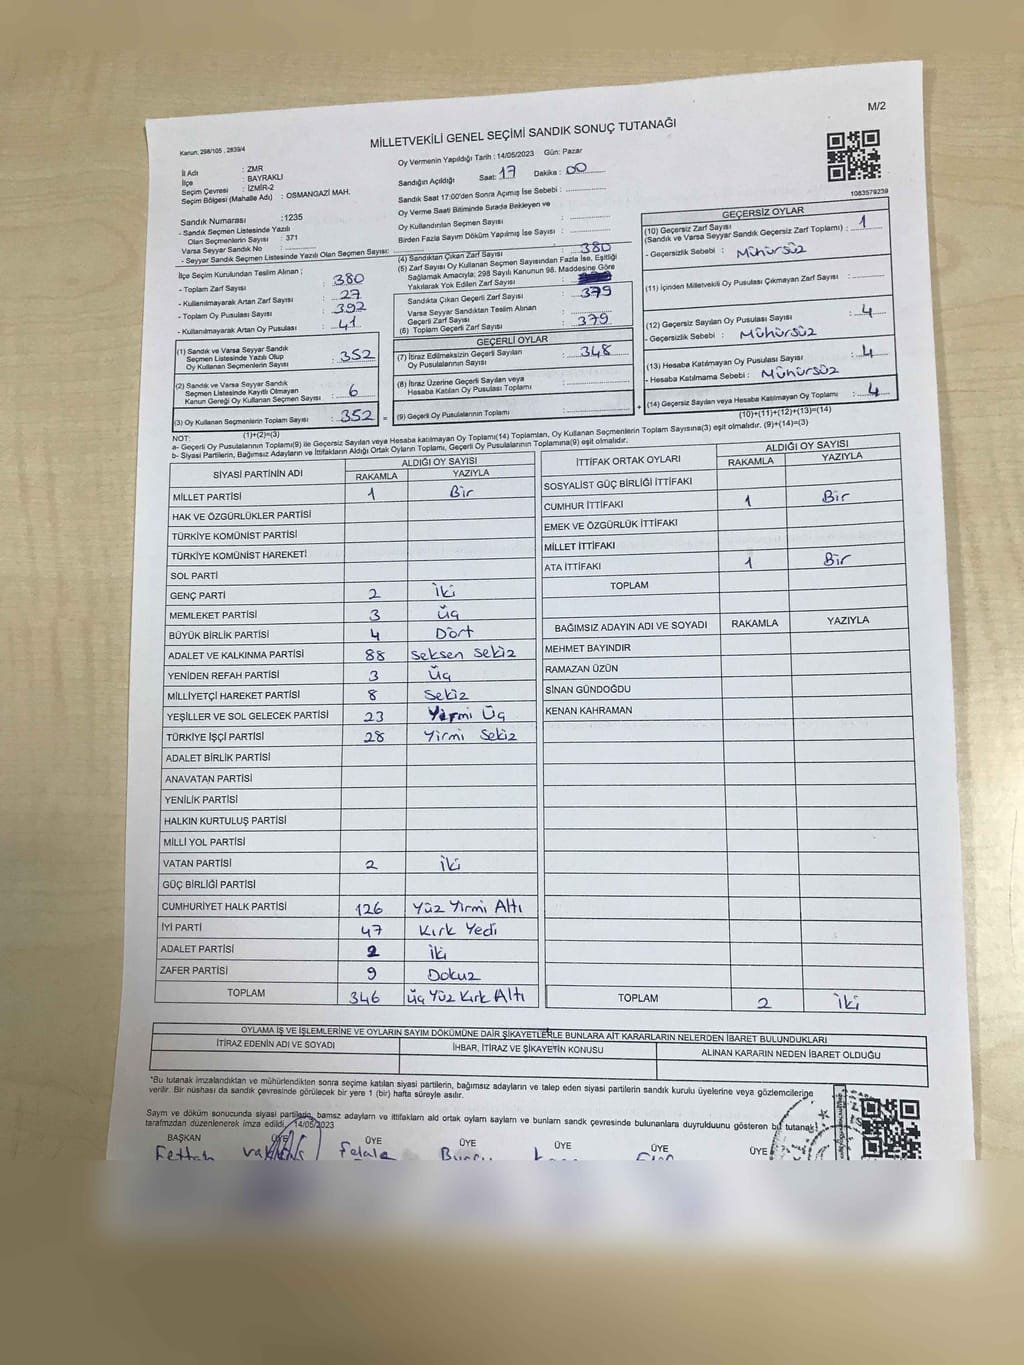 M/2
MİLLETVEKİLİ GENEL SEÇİMİ SANDIK SONUÇ TUTANAĞI
Kanun: 298/105 , 2839/4
Oy Vermenin Yapıldığı Tarih : 14/05/2023 Gün: Pazar
İl Adı : ZMR
İlçe : BAYRAKLI
Seçim Çevresi : İZMİR-2
Seçim Bölgesi (Mahalle Adı) : OSMANGAZİ MAH.
Sandık Numarası : 1235
- Sandık Seçmen Listesinde Yazılı
Olan Seçmenlerin Sayısı : 371
Varsa Seyyar Sandık No :
- Seyyar Sandık Seçmen Listesinde Yazılı Olan Seçmen Sayısı:
Sandığın Açıldığı Saat: 17 Dakika : 00
Sandık Saat 17:00'den Sonra Açımış İse Sebebi :
Oy Verme Saati Bitiminde Sırada Bekleyen ve
Oy Kullandırılan Seçmen Sayısı :
Birden Fazla Sayım Döküm Yapılmış İse Sayısı :
1083579239
İlçe Seçim Kurulundan Teslim Alınan ;
- Toplam Zarf Sayısı : 380
- Kullanılmayarak Artan Zarf Sayısı : 27
- Toplam Oy Pusulası Sayısı : 392
- Kullanılmayarak Artan Oy Pusulası : 41
(1) Sandık ve Varsa Seyyar Sandık
Seçmen Listesinde Yazılı Olup
Oy Kullanan Seçmenlerin Sayısı : 352
(2) Sandık ve Varsa Seyyar Sandık
Seçmen Listesinde Kayıtlı Olmayan
Kanun Gereği Oy Kullanan Seçmen Sayısı : 6
(3) Oy Kullanan Seçmenlerin Toplam Sayısı : 352
(1)+(2)=(3)
(4) Sandıktan Çıkan Zarf Sayısı : 380
(5) Zarf Sayısı Oy Kullanan Seçmen Sayısından Fazla İse, Eşitliği
Sağlamak Amacıyla; 298 Sayılı Kanunun 98. Maddesine Göre
Yakılarak Yok Edilen Zarf Sayısı :
Sandıkta Çıkan Geçerli Zarf Sayısı : 379
Varsa Seyyar Sandıktan Teslim Alınan
Geçerli Zarf Sayısı :
(6) Toplam Geçerli Zarf Sayısı : 379
GEÇERLİ OYLAR
(7) İtiraz Edilmeksizin Geçerli Sayılan
Oy Pusulalarının Sayısı : 348
(8) İtiraz Üzerine Geçerli Sayılan veya
Hesaba Katılan Oy Pusulası Toplamı :
= (9) Geçerli Oy Pusulalarının Toplamı : +
GEÇERSİZ OYLAR
(10) Geçersiz Zarf Sayısı
(Sandık ve Varsa Seyyar Sandık Geçersiz Zarf Toplamı) : 1
- Geçersizlik Sebebi : Mühürsüz
(11) İçinden Milletvekili Oy Pusulası Çıkmayan Zarf Sayısı :
(12) Geçersiz Sayılan Oy Pusulası Sayısı : 4
- Geçersizlik Sebebi : Mühürsüz
(13) Hesaba Katılmayan Oy Pusulası Sayısı : 4
- Hesaba Katılmama Sebebi : Mühürsüz
(14) Geçersiz Sayılan veya Hesaba Katılmayan Oy Toplamı : 4
(10)+(11)+(12)+(13)=(14)
NOT:
a- Geçerli Oy Pusulalarının Toplamı(9) ile Geçersiz Sayılan veya Hesaba katılmayan Oy Toplamı(14) Toplamları, Oy Kullanan Seçmenlerin Toplam Sayısına(3) eşit olmalıdır. (9)+(14)=(3)
b- Siyasi Partilerin, Bağımsız Adayların ve İttifakların Aldığı Ortak Oyların Toplamı, Geçerli Oy Pusulalarının Toplamına(9) eşit olmalıdır.
SİYASİ PARTİNİN ADI ALDIĞI OY SAYISI
RAKAMLA YAZIYLA
MİLLET PARTİSİ 1 Bir
HAK VE ÖZGÜRLÜKLER PARTİSİ
TÜRKİYE KOMÜNİST PARTİSİ
TÜRKİYE KOMÜNİST HAREKETİ
SOL PARTİ
GENÇ PARTİ 2 İki
MEMLEKET PARTİSİ 3 Üç
BÜYÜK BİRLİK PARTİSİ 4 Dört
ADALET VE KALKINMA PARTİSİ 88 Seksen Sekiz
YENİDEN REFAH PARTİSİ 3 Üç
MİLLİYETÇİ HAREKET PARTİSİ 8 Sekiz
YEŞİLLER VE SOL GELECEK PARTİSİ 23 Yirmi Üç
TÜRKİYE İŞÇİ PARTİSİ 28 Yirmi Sekiz
ADALET BİRLİK PARTİSİ
ANAVATAN PARTİSİ
YENİLİK PARTİSİ
HALKIN KURTULUŞ PARTİSİ
MİLLİ YOL PARTİSİ
VATAN PARTİSİ 2 İki
GÜÇ BİRLİĞİ PARTİSİ
CUMHURİYET HALK PARTİSİ 126 Yüz Yirmi Altı
İYİ PARTİ 47 Kırk Yedi
ADALET PARTİSİ 2 İki
ZAFER PARTİSİ 9 Dokuz
TOPLAM 346 Üç Yüz Kırk Altı
İTTİFAK ORTAK OYLARI ALDIĞI OY SAYISI
RAKAMLA YAZIYLA
SOSYALIST GÜÇ BİRLİĞİ İTTİFAKI
CUMHUR İTTİFAKI 1 Bir
EMEK VE ÖZGÜRLÜK İTTİFAKI
MİLLET İTTİFAKI
ATA İTTİFAKI 1 Bir
TOPLAM
BAĞIMSIZ ADAYIN ADI VE SOYADI RAKAMLA YAZIYLA
MEHMET BAYINDIR
RAMAZAN ÜZÜN
SİNAN GÜNDOĞDU
KENAN KAHRAMAN
TOPLAM 2 İki
OYLAMA İŞ VE İŞLEMLERİNE VE OYLARIN SAYIM DÖKÜMÜNE DAİR ŞİKAYETLERLE BUNLARA AİT KARARLARIN NELERDEN İBARET BULUNDUKLARI
İTİRAZ EDENİN ADI VE SOYADI İHBAR, İTİRAZ VE ŞİKAYETİN KONUSU ALINAN KARARIN NEDEN İBARET OLDUĞU
"Bu tutanak imzalandıktan ve mühürlendikten sonra seçime katılan siyasi partilerin, bağımsız adayların ve talep eden siyasi partilerin sandık kurulu üyelerine veya gözlemcilerine
verilir. Bir nüshası da sandık çevresinde görülecek bir yere 1 (bir) hafta süreyle asılır.
Sayım ve döküm sonucunda siyasi partilerin, bamsz adaylarn ve ittifaklarn ald ortak oylarn saylarn ve bunlarn sandk çevresinde bulunanlara duyrulduunu gösteren bu tutanak
tarafmzdan düzenlenerek imza edildi. 14/05/2023
BAŞKAN ÜYE ÜYE ÜYE ÜYE ÜYE ÜYE
Fettah